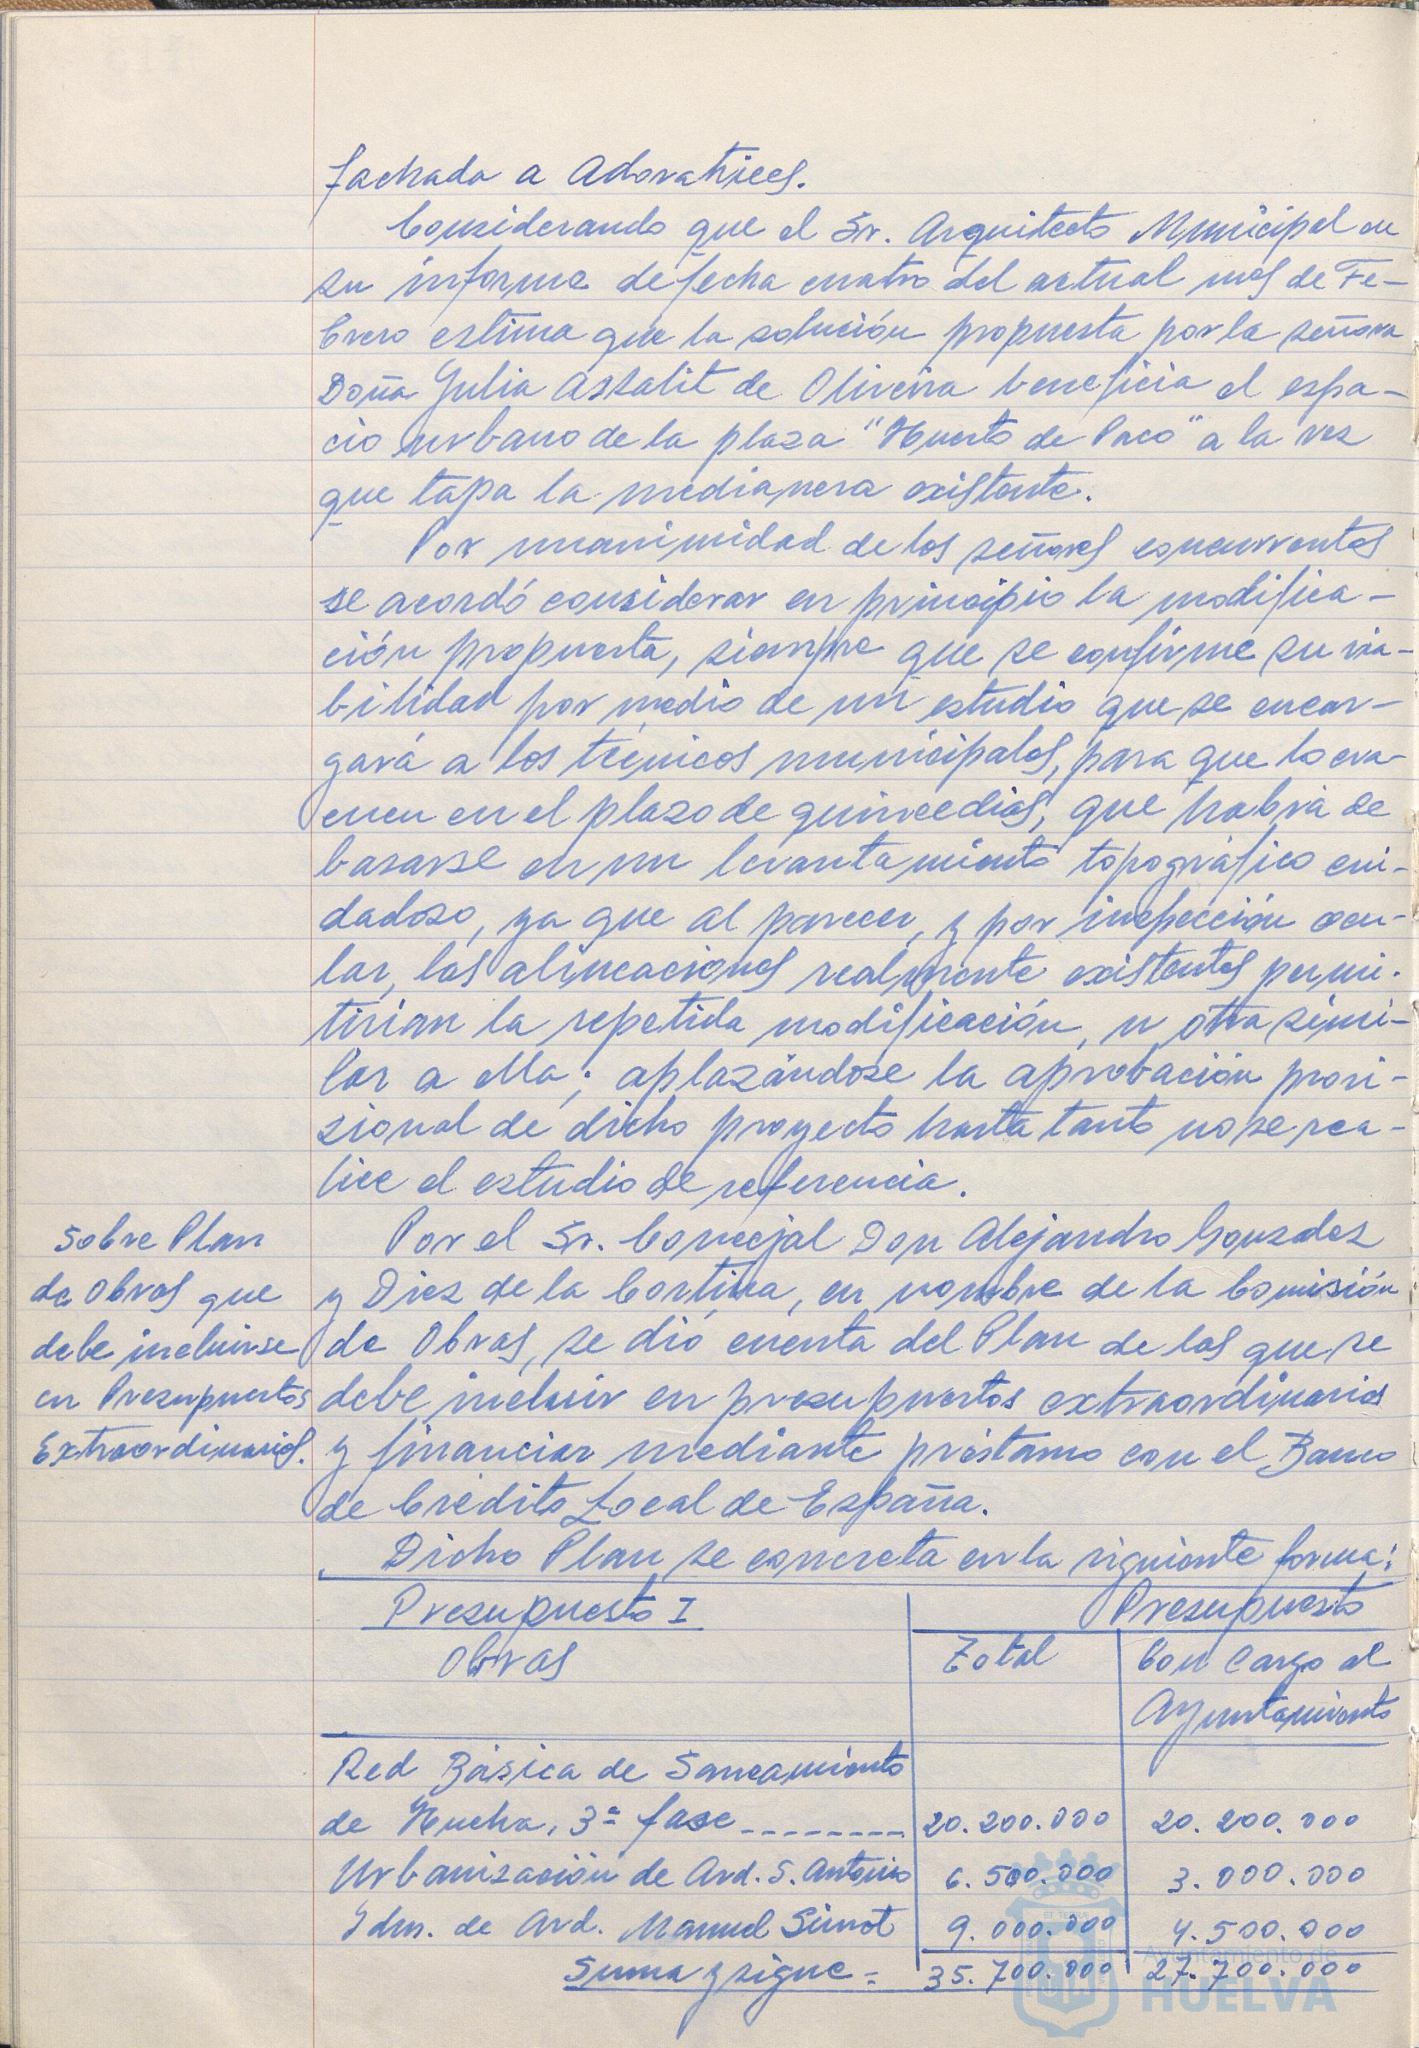 fachada a Adoratrices.
Considerando que el Sr. Arquitecto Municipal en
su informe de fecha cuatro del actual mes de Fe-
brero estima que la solución propuesta por la señora
Doña Julia Assalit de Oliveira beneficia el espa-
cio urbano de la plaza "Huerto de Paco" a la vez
que tapa la medianera existente.
Por unanimidad de los señores concurrentes
se acordó considerar en principio la modifica-
ción propuesta, siempre que se confirme su via-
bilidad por medio de un estudio que se encar-
gará a los técnicos municipales, para que lo eva-
cuen en el plazo de quince dias, que habrá de
basarse en un levantamiento topográfico cui-
dadoso, ya que al parecer, y por inspección ocu-
lar, las alineaciones realmente existentes permi-
tirian la repetida modificación, u otra simi-
lar a ella; aplazándose la aprobación provi-
sional de dicho proyecto hasta tanto no se rea-
lice el estudio de referencia.
Sobre Plan
de Obras que
debe incluirse
en Presupuestos
Extraordinarios.
Por el Sr. Concejal Don Alejandro Gonzalez
y Diez de la Cortina, en nombre de la Comisión
de Obras, se dió cuenta del Plan de las que se
debe incluir en presupuestos extraordinarios
y financiar mediante préstamo con el Banco
de Crédito Local de España.
Dicho Plan se concreta en la siguiente forma:
Presupuesto I Presupuesto
Obras Total Con cargo al
Ayuntamiento
Red Básica de Saneamiento
de Huelva, 3ª fase -------- 20.200.000 20.200.000
Urbanización de Avd. S. Antonio 6.500.000 3.000.000
Idm. de Avd. Manuel Siurot 9.000.000 4.500.000
Suma y sigue = 35.700.000 27.700.000
Ayuntamiento de
HUELVA